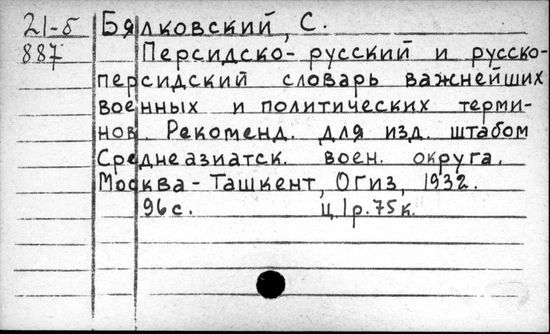 21-б Бялковский, С.
887 Персидско-русский и русско-
персидский словарь важнейших
военных и политических терми-
нов. Рекоменд. для изд. штабом
Среднеазиатск. воен. округа.
Москва-Ташкент, Огиз, 1932.
96 с. Ц 1р. 75к.